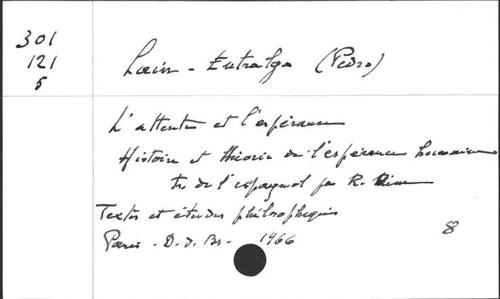 301
121
5
Lain-Entralgo (Pedro)
L'attente et l'espérance
Histoire et théorie de l'espérance humaine
tr. de l'espagnol par R.
Textes et études philosophiques
Paris - D.d.Br. - 1966
8